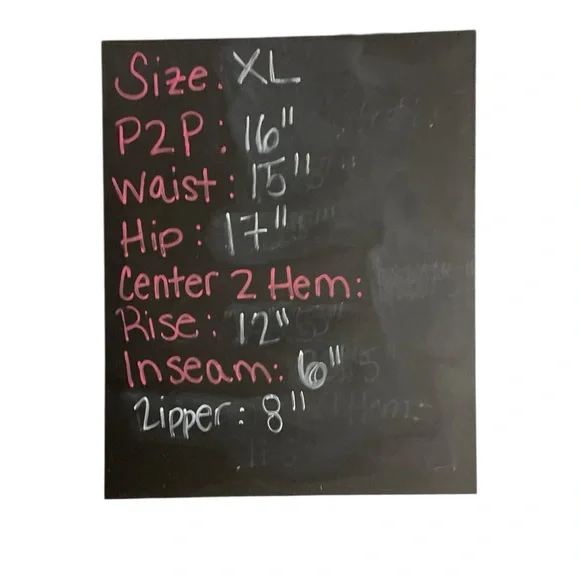 Size: XL
P2P: 16"
Waist: 15"
Hip: 17"
Center 2 Hem:
Rise: 12"
Inseam: 6"
Zipper: 8"